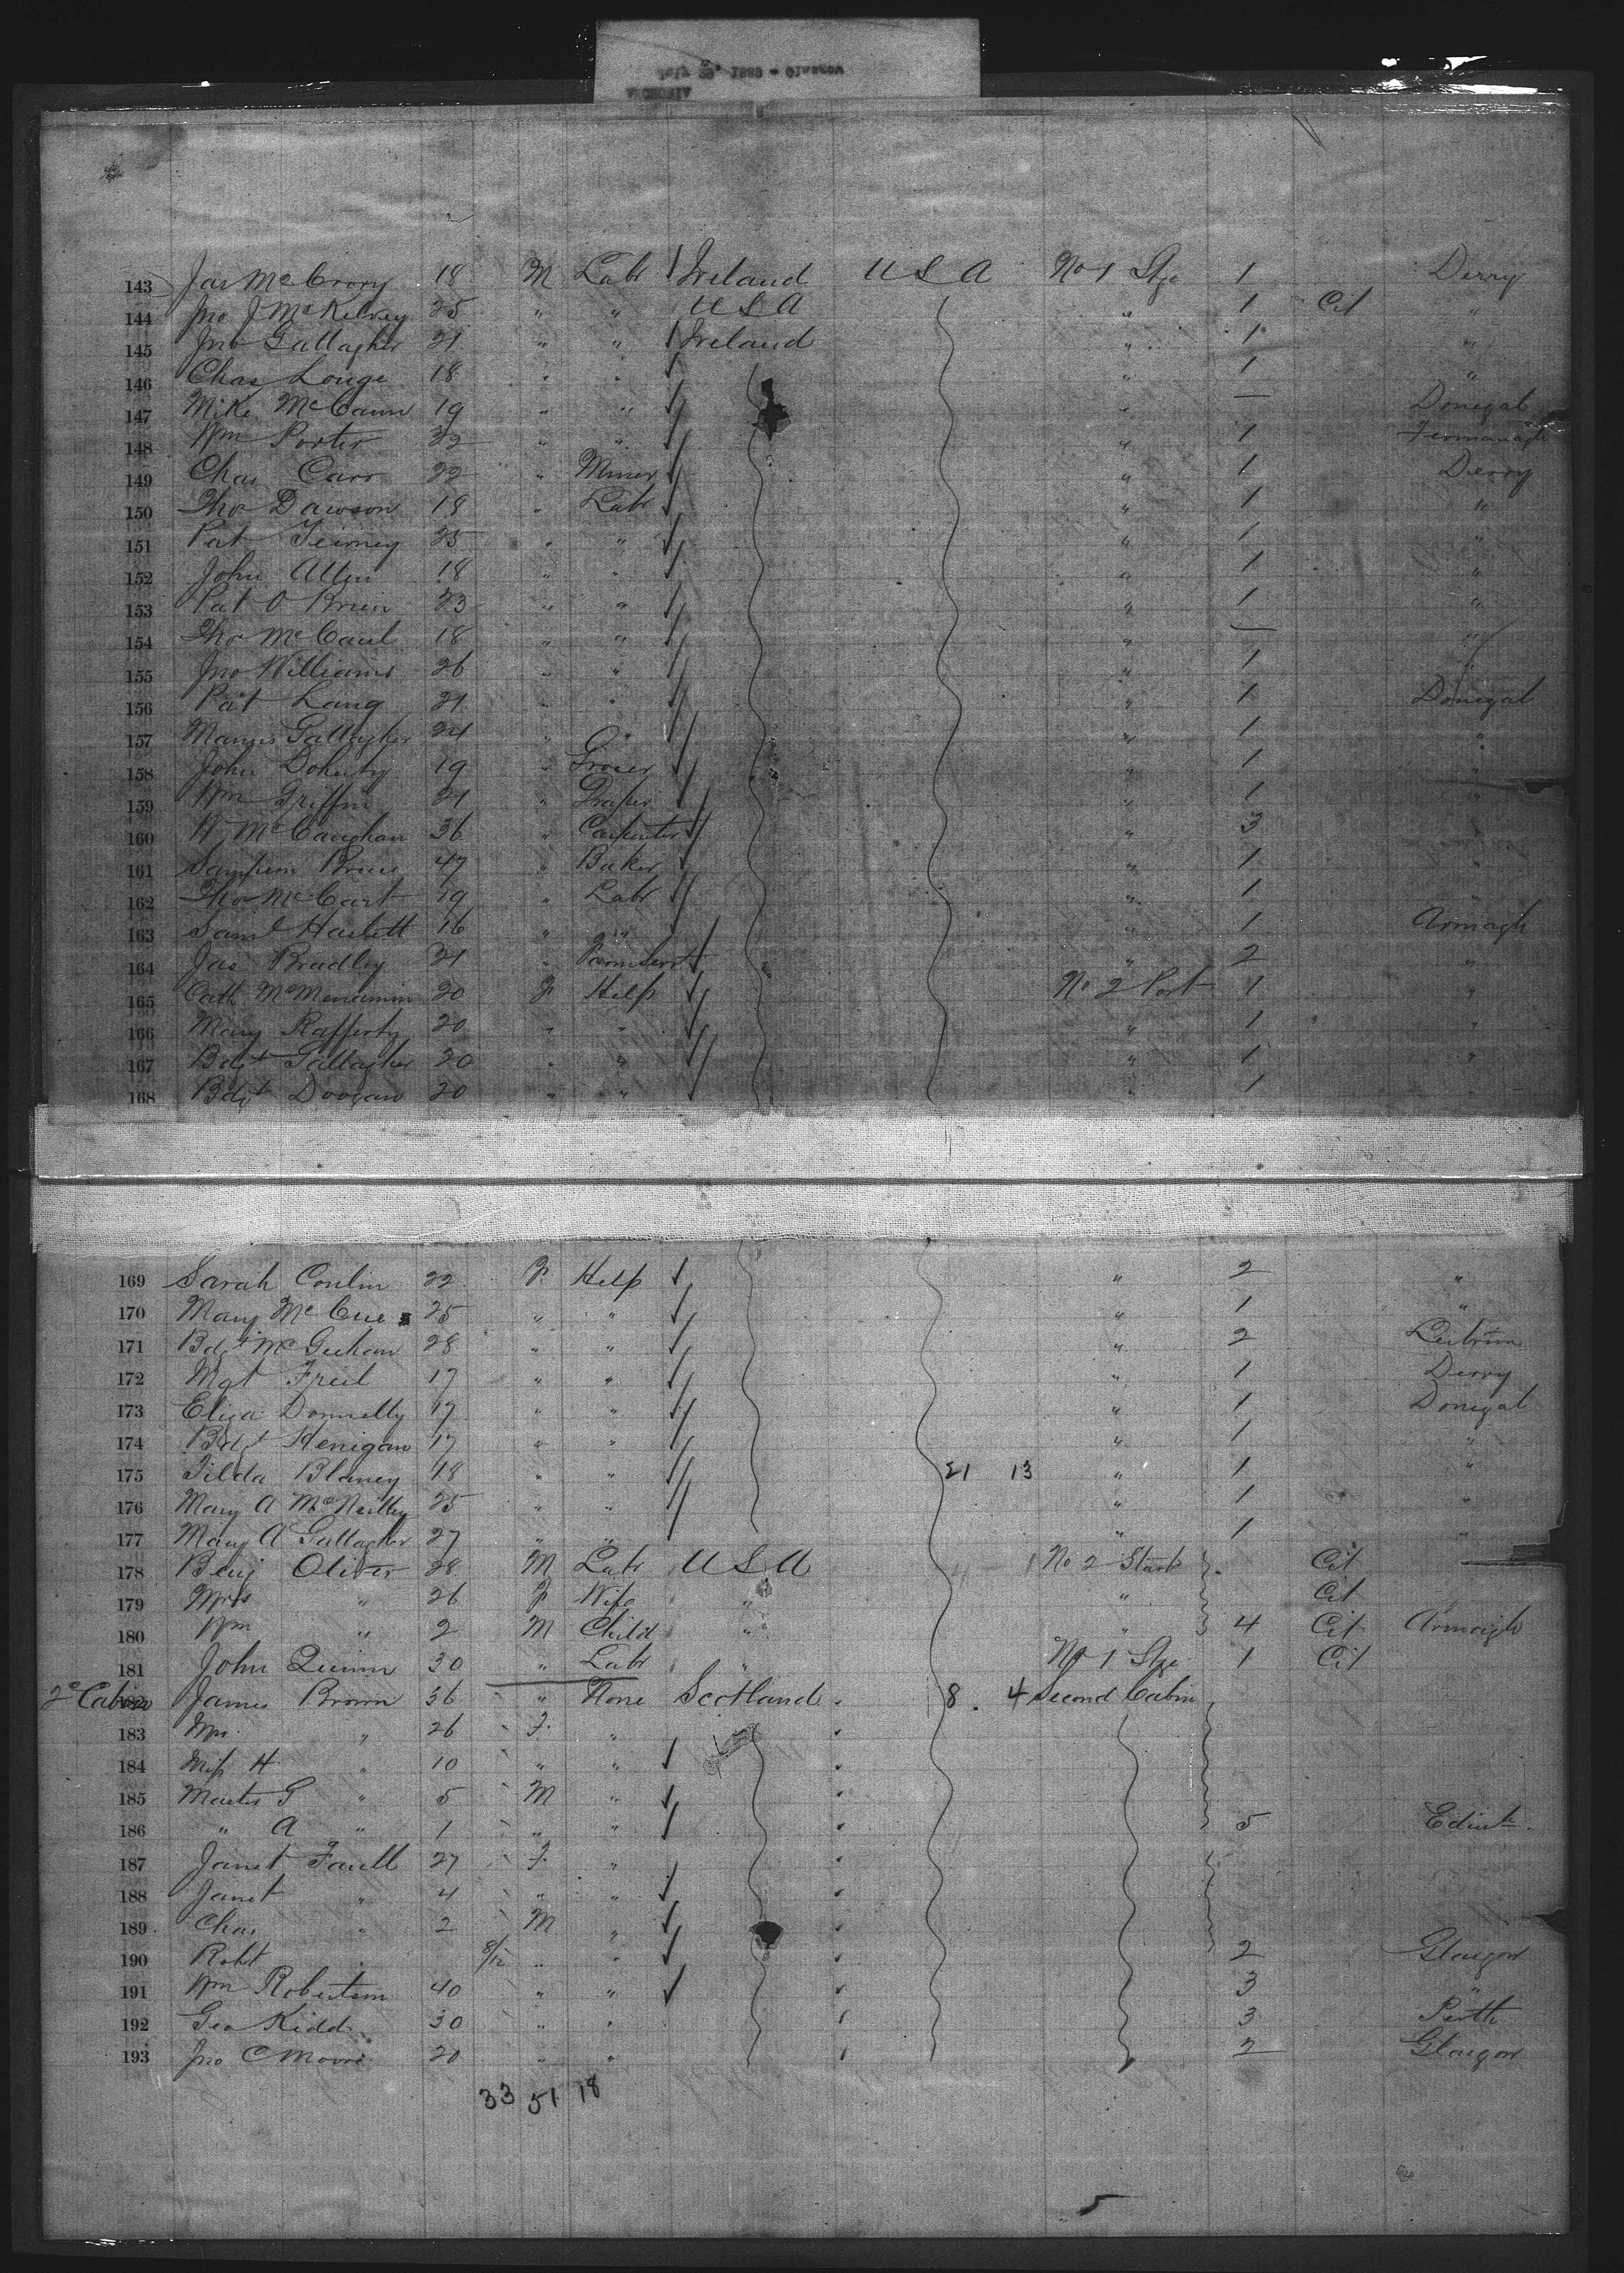 July 29, 1889 - Glasgow
ANCHORIA
143 Jas McCrory 18 M Labr Ireland U S A No 1 Stge 1 Derry
144 Jno J McKelvey 25 " " U S A " 1 Cit "
145 Jno Gallagher 21 " " Ireland " 1 "
146 Chas Louge 18 " " " 1 "
147 Mike McCann 19 " " " — Donegal
148 Wm Porter 32 " " " 1 Fermanagh
149 Chas Carr 22 " Miner " 1 Derry
150 Tho Dawson 18 " Labr " 1 "
151 Pat Teirney 25 " " " 1 "
152 John Allen 18 " " " 1 "
153 Pat O Brien 23 " " " 1 "
154 Tho McCaul 18 " " " — "
155 Jno Williams 26 " " " 1 "
156 Pat Lang 21 " " " 1 Donegal
157 Manus Gallagher 24 " " " 1 "
158 John Doherty 19 " Grocer " 1 "
159 Wm Griffin 21 " Draper " 1 "
160 W McCaughan 36 " Carpenter " 3 "
161 Bruce 47 " Baker " 1 "
162 Tho McCart 19 " Labr " 1 "
163 Saml Haslett 16 " " " 1 Armagh
164 Jas Bradley 21 " Farm Servt " 2 "
165 Cath McMenamin 20 F Help No 2 Port 1 "
166 Mary Rafferty 20 " " " 1 "
167 Bdgt Gallagher 20 " " " 1 "
168 Bdgt Doogan 20 " " " 1 "
169 Sarah Conlin 22 F Help " 2 "
170 Mary McCue 25 " " " 1 "
171 Bdgt McGeehan 28 " " " 2 Leitrim
172 Mgt Freil 17 " " " 1 Derry
173 Eliza Donnelly 17 " " " 1 Donegal
174 Bdgt Henigan 17 " " " 1 "
175 Tilda Blaney 18 " " 21 13 " 1 "
176 Mary A McNeilly 25 " " " 1 "
177 Mary A Gallagher 27 " " " 1 "
178 Benj Oliver 28 M Labr U S A No 2 Starb Cit
179 Mrs " 26 F Wife " " Cit
180 Wm " 2 M Child " " 4 Cit Armagh
181 John Quinn 30 " Labr " No 1 Stge 1 Cit
2d Cabin 182 James Brown 36 " None Scotland 8 4 Second Cabin
183 Mrs " 26 F "
184 Miss H " 10 " "
185 Master G " 5 M "
186 " A " 1 " " 5 Edinbh
187 Janet Faull 27 F "
188 Janet " 4 " "
189 Chas " 2 M "
190 Robt " 8/12 " " 2 Glasgow
191 Wm Robertson 40 " " 3 "
192 Geo Kidd 30 " " 3 Perth
193 Jno C Moore 20 " " 2 Glasgow
33 51 18
5